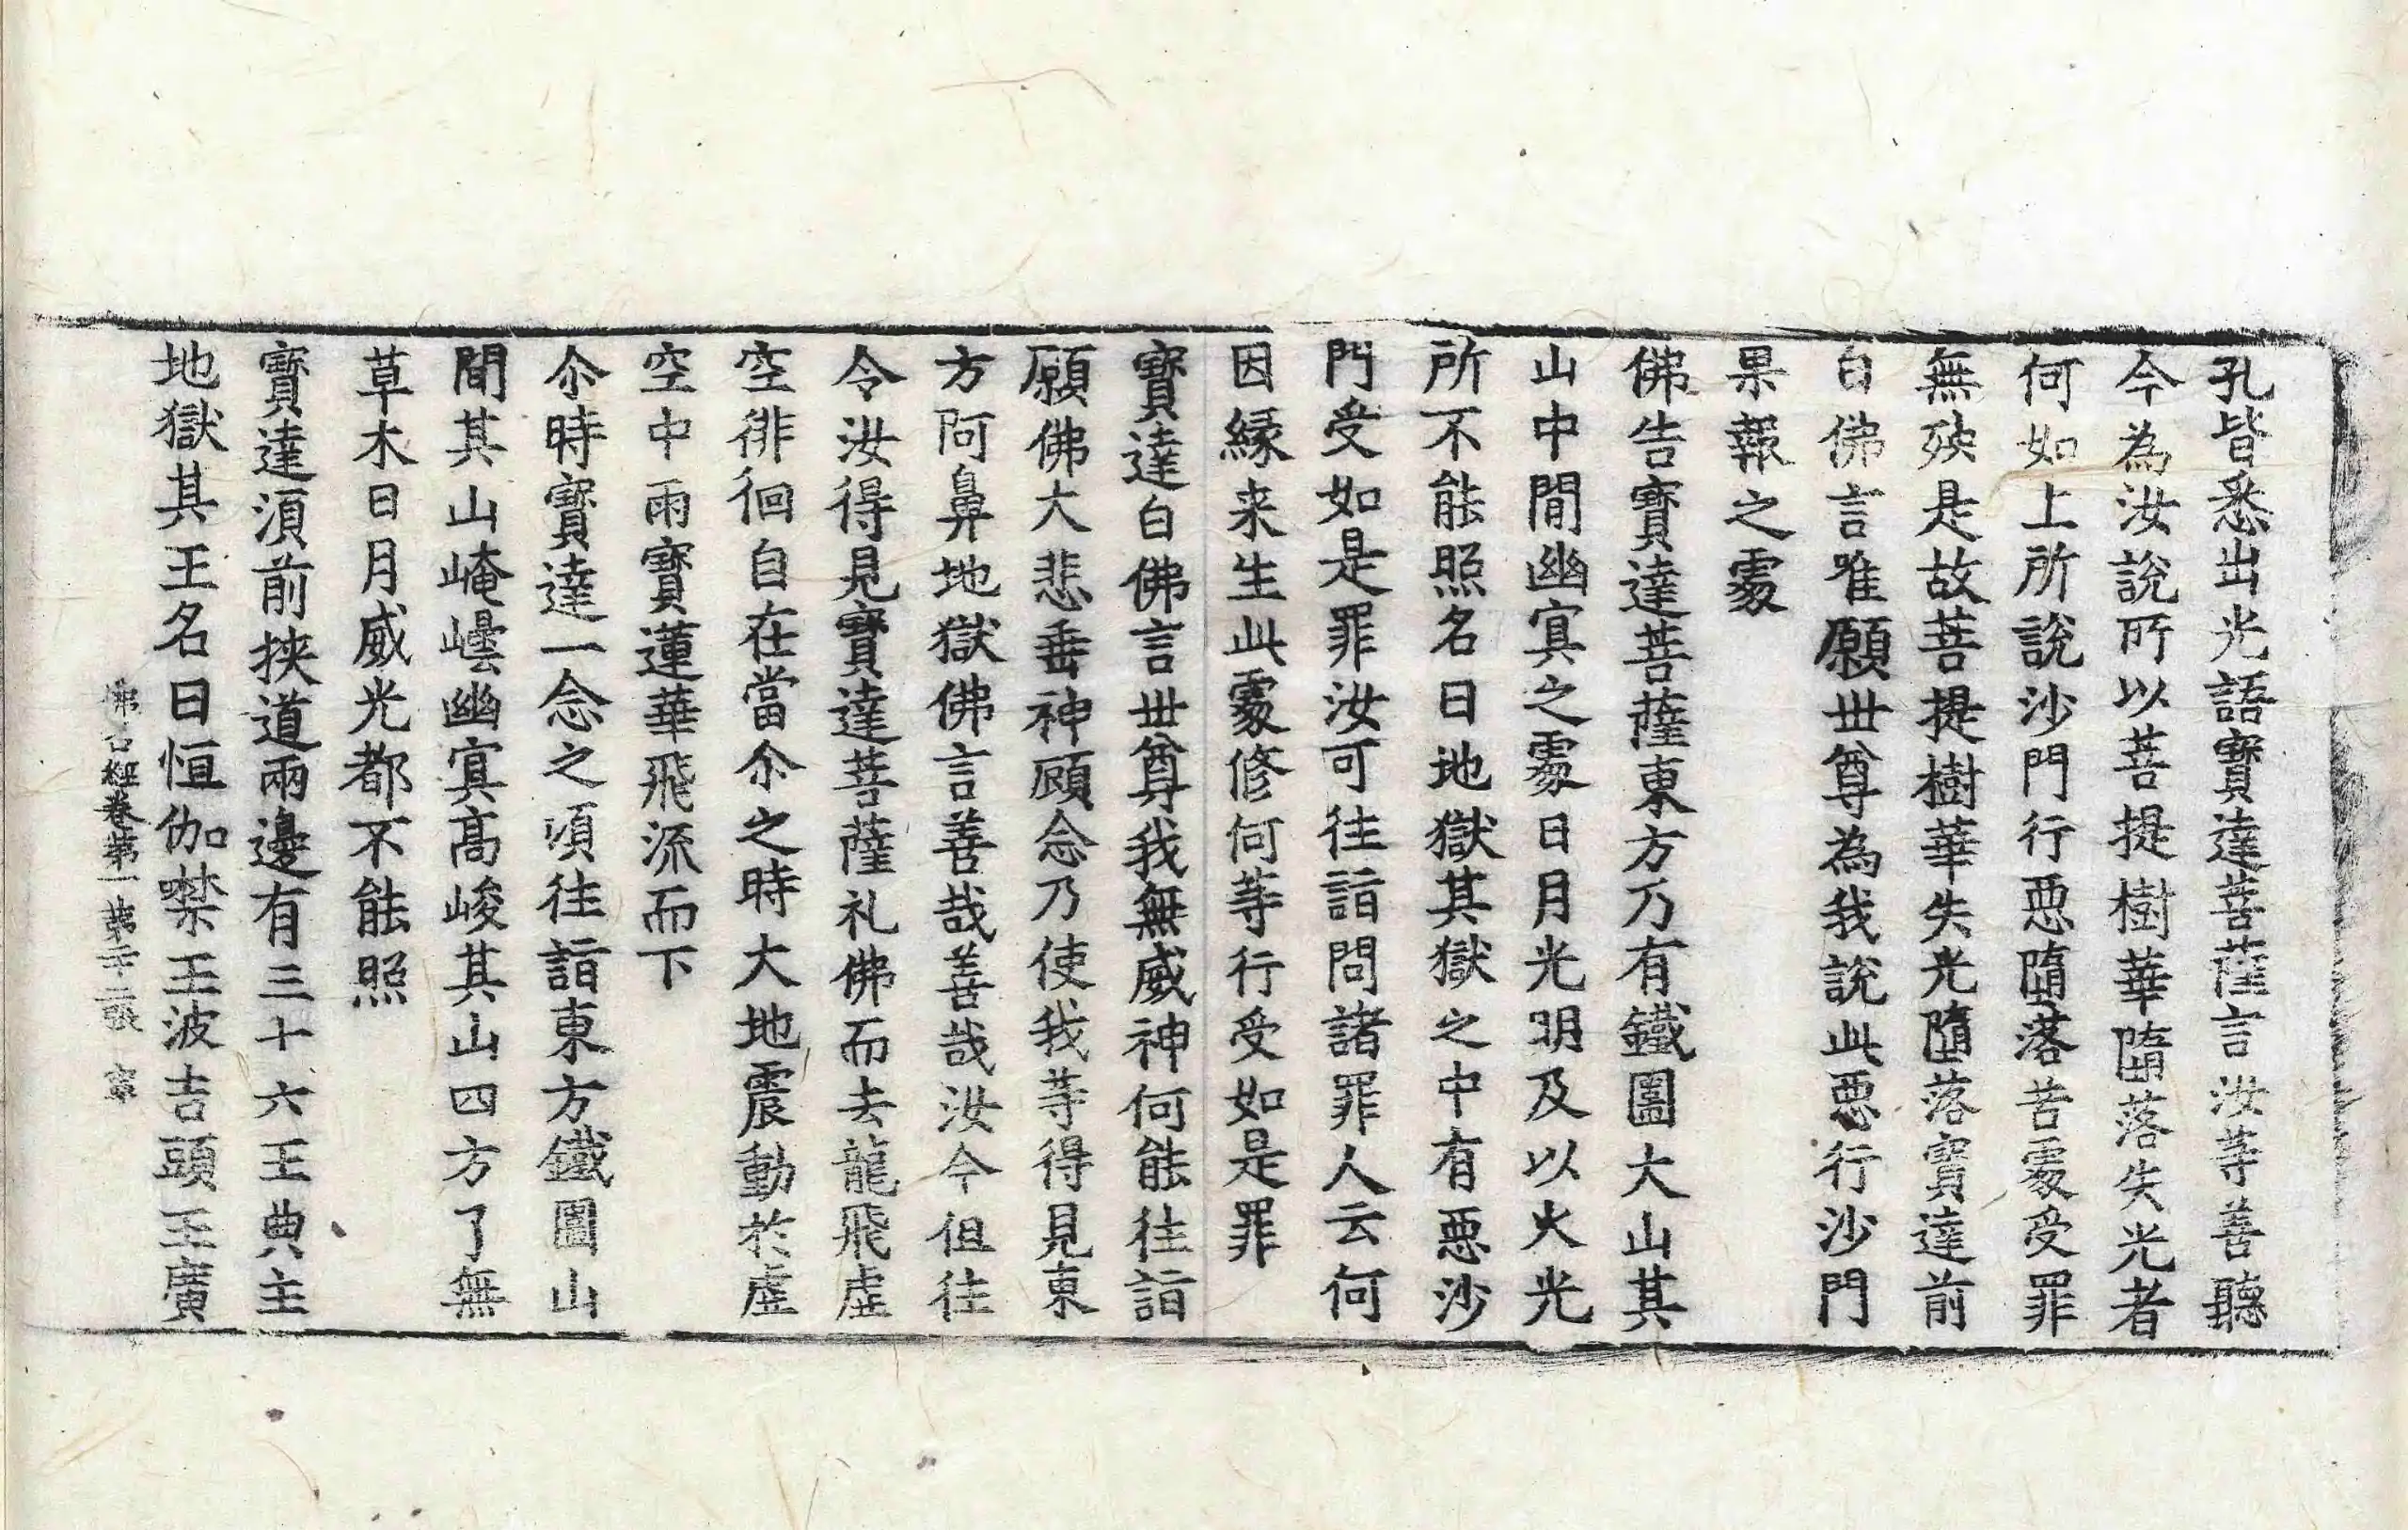 孔皆悉出光語寶達菩薩言汝等善聽
今為汝說所以菩提樹華墮落失光者
何如上所說沙門行惡墮落苦處受罪
無殃是故菩提樹華失光墮落寶達前
白佛言唯願世尊為我說此惡行沙門
果報之處
佛告寶達菩薩東方乃有鐵圍大山其
山中間幽冥之處日月光明及以火光
所不能照名曰地獄其獄之中有惡沙
門受如是罪汝可往詣問諸罪人云何
因緣来生此處修何等行受如是罪
寶達白佛言世尊我無威神何能往詣
願佛大悲垂神顧念乃使我等得見東
方阿鼻地獄佛言善哉善哉汝今但往
令汝得見寶達菩薩礼佛而去龍飛虛
空徘徊自在當尒之時大地震動於虛
空中雨寶蓮華飛流而下
尒時寶達一念之頃往詣東方鐵圍山
間其山崦嵦幽冥高峻其山四方了無
草木日月威光都不能照
寶達湏前挾道兩邊有三十六王典主
地獄其王名曰恒伽噤王波吉頭王廣
佛名經卷第一 第二十二張 寧